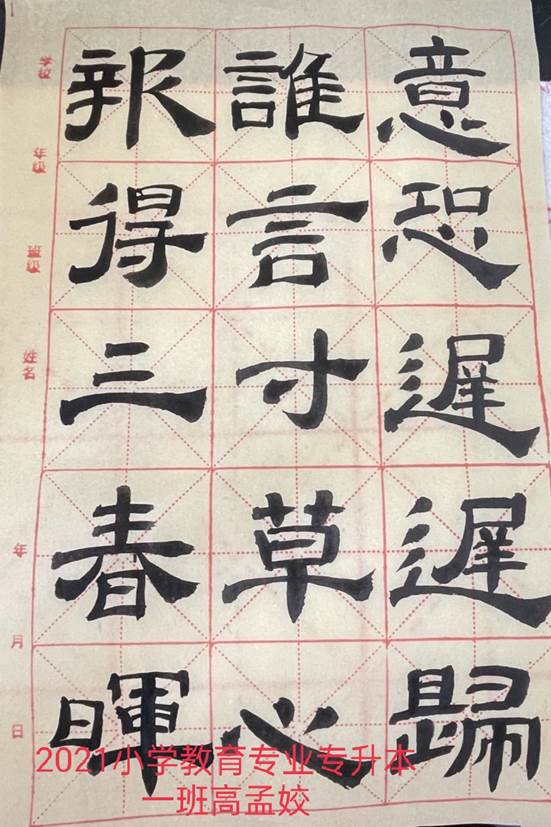 意恐遲遲歸
誰言寸草心
報得三春暉
学校
年级
班级
姓名
年
月
日
2021小学教育专业专升本
一班高孟姣